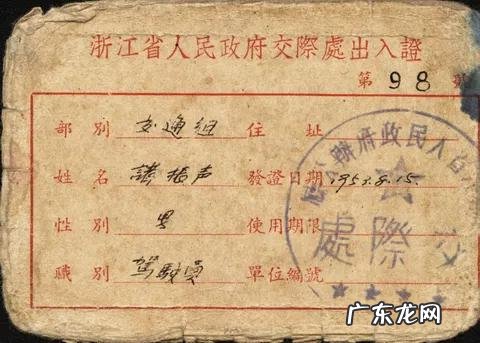 浙江省人民政府交際處出入證
第 98 號
部別 交通组 住址
姓名 諸振声 發證日期 1953.8.15.
性別 男 使用期限
職別 駕駛員 單位編號
省人民政府辦公
交際處
广东龙网